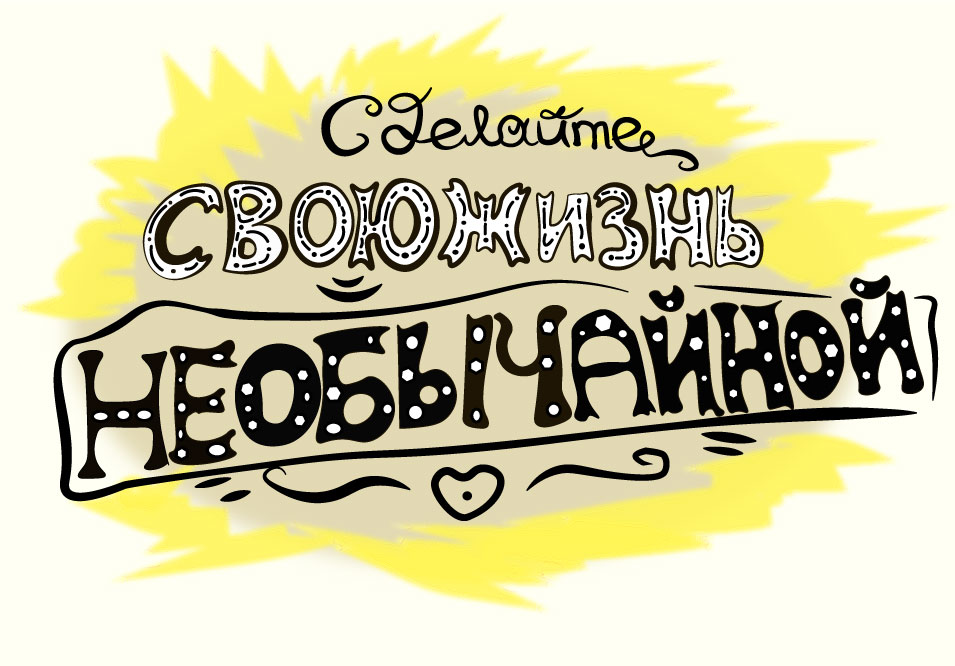 Сделайте
СВОЮ ЖИЗНЬ
НЕОБЫЧАЙНОЙ